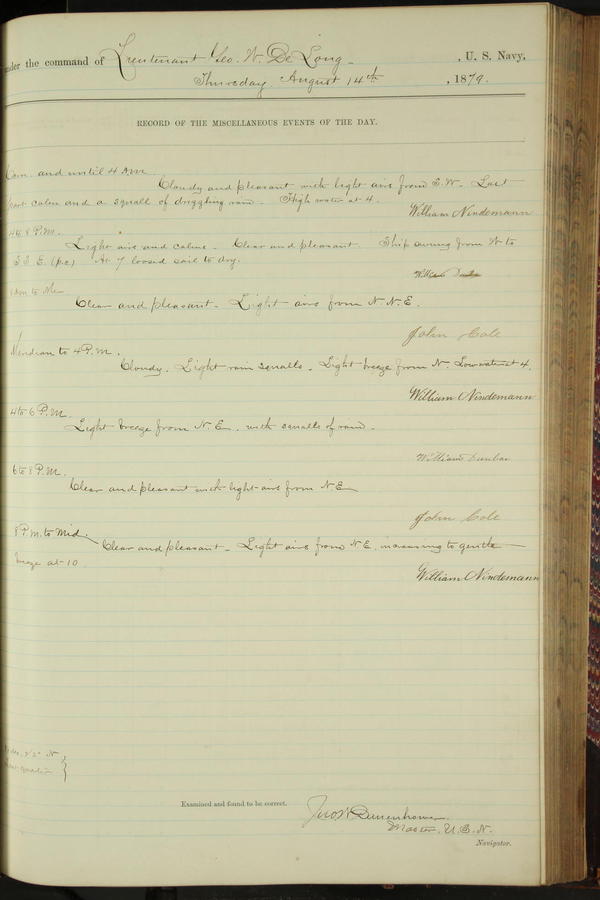 under the command of Lieutenant Geo. W. De Long , U. S. Navy,
Thursday August 14th , 1879.
RECORD OF THE MISCELLANEOUS EVENTS OF THE DAY.
Com. and until 4 A.M.
Cloudy and pleasant with light airs from S.W. Last
part calm and a squall of drizzling rain. High water at 4.
William Nindemann
4 to 8 P.M.
Light airs and calms. Clear and pleasant. Ship swung from W to
S S E. (p.c.) At 7 loosed sail to dry.
William Dunbar
8 Am to Mer
Clear and pleasant. Light airs from N.N.E.
John Cole
Meridian to 4 P.M.
Cloudy. Light rain squalls. Light breeze from N. Low water at 4.
William Nindemann
4 to 6 P.M.
Light breeze from N.E. with squalls of rain.
William Dunbar
6 to 8 P.M.
Clear and pleasant with light airs from N.E.
John Cole
8 P.M. to Mid.
Clear and pleasant. Light airs from N.E. increasing to gentle
breeze at 10
William Nindemann
Examined and found to be correct.
Jno W Danenhower
Master, U.S.N.
Navigator.